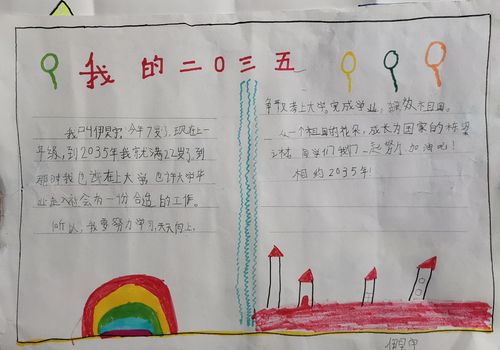 我的二〇三五
我叫伊 今年7岁，现在上一
年级，到2035年我就满22岁，到
那时我也 在上大学，也许大学毕
业走入社会有一份合适的工作。
所以，我要努力学习，天天向上，
争取考上大学，完成学业， 效祖国。
从一个祖国的花朵，成长为国家的栋梁
之材，同学们我们一起努力，加油吧！
相约2035年！